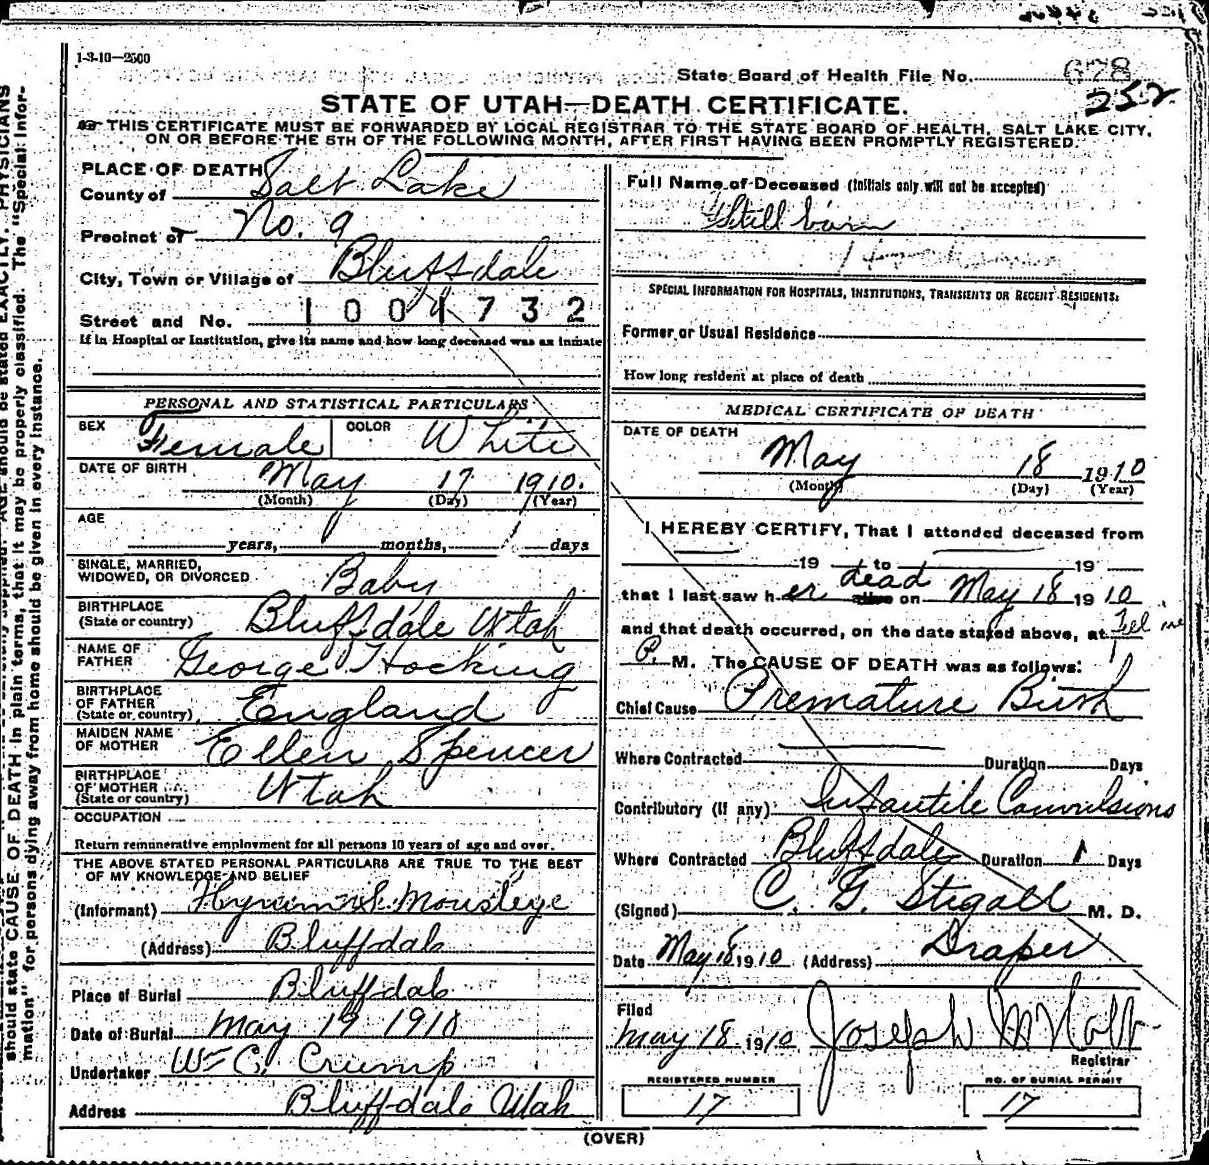 1-3-10—2500
State Board of Health File No. 678
252
STATE OF UTAH—DEATH CERTIFICATE.
THIS CERTIFICATE MUST BE FORWARDED BY LOCAL REGISTRAR TO THE STATE BOARD OF HEALTH, SALT LAKE CITY,
ON OR BEFORE THE 5TH OF THE FOLLOWING MONTH, AFTER FIRST HAVING BEEN PROMPTLY REGISTERED.
PLACE OF DEATH
County of Salt Lake
Precinct of No. 9
City, Town or Village of Bluffdale
Street and No. 1001732
If in Hospital or Institution, give its name and how long deceased was an inmate
PERSONAL AND STATISTICAL PARTICULARS
SEX Female COLOR White
DATE OF BIRTH May 17 1910.
(Month) (Day) (Year)
AGE
years, months, 1 days
SINGLE, MARRIED,
WIDOWED, OR DIVORCED Baby
BIRTHPLACE
(State or country) Bluffdale Utah
NAME OF
FATHER George Hocking
BIRTHPLACE
OF FATHER
(State or country) England
MAIDEN NAME
OF MOTHER Ellen Spencer
BIRTHPLACE
OF MOTHER
(State or country) Utah
OCCUPATION
Return remunerative employment for all persons 10 years of age and over.
THE ABOVE STATED PERSONAL PARTICULARS ARE TRUE TO THE BEST
OF MY KNOWLEDGE AND BELIEF
(Informant)
(Address) Bluffdale
Place of Burial Bluffdale
Date of Burial May 19 1910
Undertaker Wm C. Crump
Address Bluffdale Utah
Full Name of Deceased (Initials only will not be accepted)
Still born
SPECIAL INFORMATION FOR HOSPITALS, INSTITUTIONS, TRANSIENTS OR RECENT RESIDENTS:
Former or Usual Residence
How long resident at place of death
MEDICAL CERTIFICATE OF DEATH
DATE OF DEATH
May 18 1910
(Month) (Day) (Year)
I HEREBY CERTIFY, That I attended deceased from
19 to 19
dead
that I last saw her alive on May 18 1910
and that death occurred, on the date stated above, at
P. M. The CAUSE OF DEATH was as follows:
Chief Cause Premature Birth
Where Contracted Duration Days
Contributory (if any) Infantile Convulsions
Where Contracted Bluffdale Duration 1 Days
(Signed) C. G. Stigall M. D.
Date May 18 1910 (Address) Draper
Filed
May 18 1910 Joseph
Registrar
REGISTERED NUMBER
17
NO. OF BURIAL PERMIT
17
(OVER)
AGE should be stated EXACTLY. PHYSICIANS
should state CAUSE OF DEATH in plain terms, that it may be properly classified. The "Special Infor-
mation" for persons dying away from home should be given in every instance.